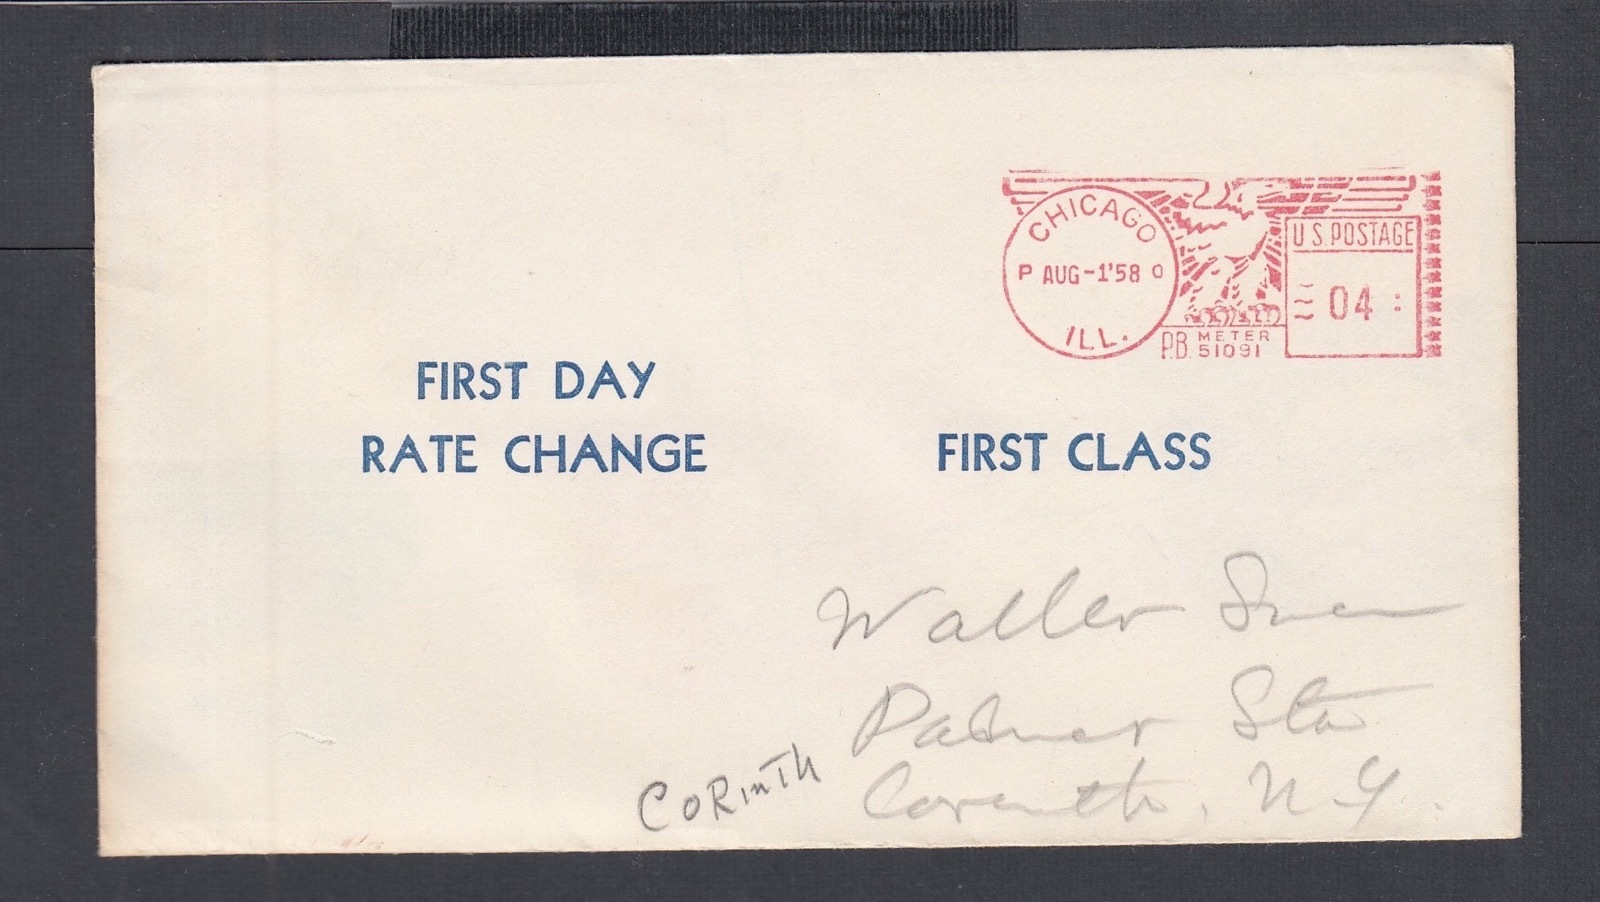 CHICAGO
P AUG-1'58 O
ILL.
P.B. METER
51091
U.S. POSTAGE
04
FIRST DAY
RATE CHANGE
FIRST CLASS
Walter
Palmer Sta
Corinth, N.Y.
CORinTh